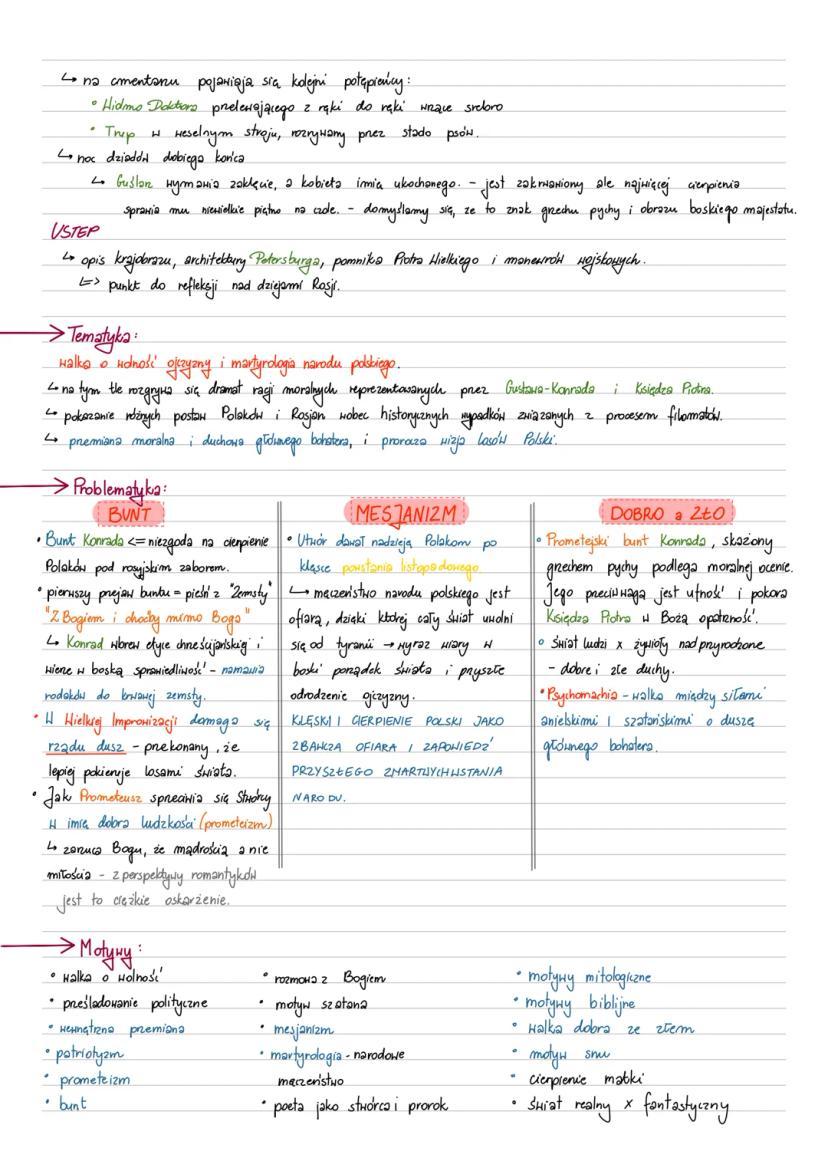 ↳ na cmentarzu pojawiają się kolejni potępieńcy:
• Widmo Doktora przelewającego z ręki do ręki wrzące srebro
• Trup w weselnym stroju, rozrywany przez stado psów.
↳ noc dziadów dobiega końca
↳ Guślarz wymawia zaklęcie, a kobieta imię ukochanego. - jest zakrwawiony ale najwięcej cierpienia
sprawia mu niewielkie piętno na czole. - domyślamy się, że to znak grzechu pychy i obrazu boskiego majestatu.
USTĘP
↳ opis krajobrazu, architektury Petersburga, pomnika Piotra Wielkiego i manewrów wojskowych.
↳> punkt do refleksji nad dziejami Rosji.
→ Tematyka:
walka o wolność ojczyzny i martyrologia narodu polskiego.
↳ na tym tle rozgrywa się dramat racji moralnych reprezentowanych przez Gustawa-Konrada i Księdza Piotra.
↳ pokazanie różnych postaw Polaków i Rosjan wobec historycznych wypadków związanych z procesem filomatów.
↳ przemiana moralna i duchowa głównego bohatera, i prorocza wizja losów Polski.
→ Problematyka:
BUNT
• Bunt Konrada <= niezgoda na cierpienie
Polaków pod rosyjskim zaborem.
• pierwszy przejaw buntu = pieśń z "Zemsty"
"Z Bogiem i choćby mimo Boga"
↳ Konrad wbrew etyce chrześcijańskiej i
wierze w boską sprawiedliwość - namawia
rodaków do krwawej zemsty.
• W Wielkiej Improwizacji domaga się
rządu dusz - przekonany, że
lepiej pokieruje losami świata.
• Jak Prometeusz sprzeciwia się Stwórcy
w imię dobra ludzkości (prometeizm)
↳ zarzuca Bogu, że mądrością a nie
miłością - z perspektywy romantyków
jest to ciężkie oskarżenie.
MESJANIZM
• Utwór dawał nadzieję Polakom po
klęsce powstania listopadowego.
↳ męczeństwo narodu polskiego jest
ofiarą, dzięki której cały świat uwolni
się od tyranii → wyraz wiary w
boski porządek świata i przyszłe
odrodzenie ojczyzny.
KLĘSKI I CIERPIENIE POLSKI JAKO
ZBAWCZA OFIARA I ZAPOWIEDŹ
PRZYSZŁEGO ZMARTWYCHWSTANIA
NARODU.
DOBRO a ZŁO
• Prometejski bunt Konrada, skażony
grzechem pychy podlega moralnej ocenie.
Jego przeciwwagą jest ufność i pokora
Księdza Piotra w Bożą opatrzność.
• Świat ludzi x żywioły nadprzyrodzone
- dobre i złe duchy.
• Psychomachia - walka między siłami
anielskimi i szatańskimi o duszę
głównego bohatera.
→ Motywy:
• walka o wolność
• prześladowanie polityczne
• wewnętrzna przemiana
• patriotyzm
• prometeizm
• bunt
• rozmowa z Bogiem
• motyw szatana
• mesjanizm
• martyrologia - narodowe
męczeństwo
• poeta jako stwórca i prorok
• motywy mitologiczne
• motywy biblijne
• walka dobra ze złem
• motyw snu
• cierpienie matki
• świat realny x fantastyczny